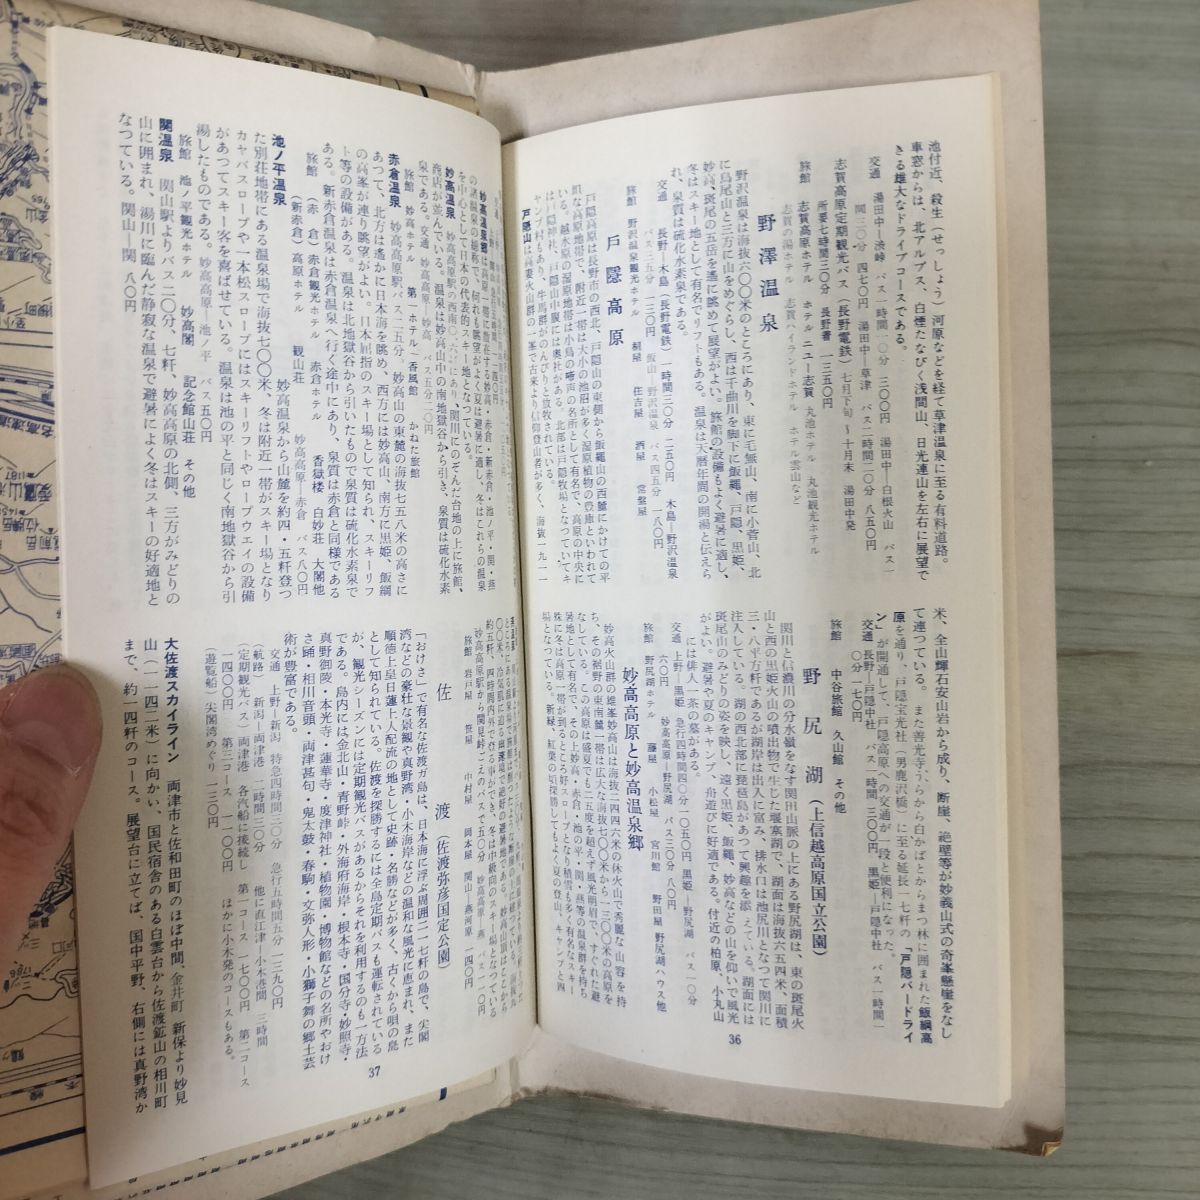 池付近、殺生（せっしょう）河原などを経て草津温泉に至る有料道路。
車窓からは、北アルプス、白煙たなびく浅間山、日光連山を左右に展望で
きる雄大なドライブコースである。
交通　湯田中―渋峠　バス一時間一〇分　三〇〇円　湯田中―白根火山　バス一
間三〇分　四七〇円　湯田中―草津　バス二時間二〇分　八五〇円
志賀高原定期観光バス（長野電鉄）七月下旬〜十月末　湯田中発
所要七時間三〇分　長野着　一三五〇円
旅館　志賀高原ホテル　ホテルニュー志賀　丸池ホテル　丸池観光ホテル
志賀の湯ホテル　志賀ハイランドホテル　ホテル雲山など
野澤温泉
野沢温泉は海抜六〇〇米のところにあり、東に毛無山、南に小菅山、北
に鳥尾山と三方に山をめぐらし、西は千曲川を脚下に飯縄、戸隠、黒姫、
妙高、斑尾の五岳を遙に眺めて展望がよい。旅館の設備もよく避暑に適し、
冬はスキー地として有名でリフトもある。温泉は天暦年間の開湯と伝えら
れ、泉質は硫化水素泉である。
交通　長野―木島（長野電鉄）時間三〇分　二五〇円　木島―野沢温泉
バス三五分　一三〇円　飯山―野沢温泉　バス四五分　一八〇円
旅館　野沢温泉観光ホテル　桐屋　住吉屋　酒屋　常盤屋
戸隠高原
戸隠高原は長野市の西北、戸隠山の東側から飯縄山の西麓にかけての平
坦な高原地帯で、附近一帯は大小の池沼が多く湿原植物の豊庫といわれて
いる。越水原の湿原地帯は小鳥の啼声の名所として有名で、高原の中央に
は戸隠神社、戸隠山中腹には奥社がある。北部は戸隠牧場となつていてキ
ャンプ村もあり、牛馬群がのんびりと放牧されている。
戸隠山は高妻火山群の一峯で古来より信仰登山者が多く、海抜一九一一
米、全山輝石安山岩から成り、断崖、絶壁等が妙義山式の奇峯懸崖をなし
て連つている。また善光寺うらから白かばとからまつ林に囲まれた飯綱高
原を通り、戸隠宝光社（男鹿沢橋）に至る延長一七粁の「戸隠バードライ
ン」が開通して、戸隠高原への交通が一段と便利になつた。
交通　長野―戸隠中社　バス一時間　三〇〇円　黒姫―戸隠中社　バス一時間一
〇分一七〇円
旅館　中谷旅館　久山館　その他
野尻湖（上信越高原国立公園）
関川と信濃川の分水嶺をなす関田山脈の上にある野尻湖は、東の斑尾火
山と西の黒姫火山の噴出物で生じた堰塞湖で、湖面は海抜六五四米、面積
三・八平方粁であるが湖岸は出入に富み、排水口は池尻川となつて関川に
注入している。湖の西北部に琵琶島があつて美しく興趣を添えている。湖面には
斑尾山のみどりの姿を映し、遠く黒姫、飯縄、妙高などの山を仰いで風光
がよい。避暑や夏のキャンプ、舟遊びに好適である。付近の柏原、小丸山
には俳人一茶の墓がある。
交通　上野―黒姫　急行四時間四〇分一〇五〇円　黒姫―野尻湖　バス一〇分
六〇円　妙高高原―野尻湖　バス三〇分　八〇円
旅館　野尻湖ホテル　藤屋　小松屋　宮川館　野田屋　野尻湖ハウス他
妙高高原と妙高温泉郷
妙高火山群の雄峯妙高山は海抜二四四六米の休火山で秀麗な山容を持
ち、その裾野の東南麓一帯は広大な海抜七〇〇米から一三〇〇米の高原を
なしている。この高原は盛夏でも二五度を超えず風光明眉で、すぐれた避
暑地として有名で、その上妙高・赤倉・池の平・関・燕等の温泉群を持ち
殊に冬は高原一帯が到るところ好スロープとなり積雪も多く有名なスキー
場となつている。新緑、紅葉の頃探勝してもよく夏の登山、キャンプと四
36
妙高温泉郷は高原一帯に散在する妙高・赤倉・新赤倉・池ノ平・関・燕
の諸温泉の総称で、何れも眺望がよく夏は避暑に適し、冬はこれらの温泉
を中心として日本の代表的スキー地となつている。
妙高温泉　妙高高原駅の西南〇・六粁にあり、関川にのぞんだ台地の上に旅館、
商店が並んでいる。温泉は妙高山中の南地獄谷から引き、泉質は硫化水素
泉である。交通　妙高高原―妙高　バス五分二〇円
旅館　妙高ホテル　第一ホテル　香風館　かねた旅館
赤倉温泉　妙高高原駅バス一五分、妙高山の東麓の海抜七五八米の高さに
あつて、北方は遙かに日本海を眺め、西方には妙高山、南方に黒姫、飯綱
の高峯が連り眺望がよい。日本屈指のスキー場として知られ、スキーリフ
ト等の設備がある。温泉は北地獄谷から引いたもので泉質は硫化水素泉で
ある。新赤倉温泉は赤倉温泉へ行く途中にあり、泉質は赤倉と同様である
妙高高原―赤倉　バス八〇円
旅館　（赤倉）赤倉観光ホテル　赤倉ホテル　香嶽楼　白妙荘　大閤他
（新赤倉）高原ホテル　観山荘
池ノ平温泉　妙高温泉から山麓を約四・五粁登つ
た別荘地帯にある温泉場で海抜七〇〇米、冬は附近一帯がスキー場となり
カヤバスロープや一本松スロープにはスキーリフトやロープウエイの設備
があつてスキー客を喜ばせている。温泉は池の平と同じく南地獄谷から引
湯したものである。妙高高原―池ノ平　バス五〇円
旅館　池ノ平観光ホテル　妙高閣　記念館山荘　その他
関温泉　関山駅よりバス二〇分、七粁、妙高高原の北側、三方がみどりの
山に囲まれ、湯川に臨んだ静寂な温泉で避暑によく冬はスキーの好適地と
なつている。関山―関　八〇円
〇〇米、冷気肌に迫る幽邃境で、絶好の避暑地である。
約五粁、四時間内外で登る事ができ、冬は中級向のスキー場となつている
妙高高原駅から関見峠ごえのバスで五〇分　妙高高原―燕　バス一一〇円
旅館　岩戸屋　笹屋　中村屋　岡本屋　関山―燕河原　一四〇円
佐渡（佐渡弥彦国定公園）
「おけさ」で有名な佐渡ガ島は、日本海に浮ぶ周囲二一七粁の島で、尖閣
湾などの豪壮な景観や真野湾・小木海岸などの温和な風光に恵まれ、また
順徳上皇日蓮上人配流の地として史跡・名勝などが多く、古くから唄の島
として知られている。佐渡を探勝するには全島定期バスも運転されている
が、観光シーズンには定期観光バスがあるからそれを利用するのも一方法
である。島内には金北山・青野峠・外海府海岸・根本寺・国分寺・妙照寺・
真野御陵・本光寺・蓮華寺・度津神社・植物園・博物館などの名所やおけ
さ踊・相川音頭・両津甚句・鬼太鼓・春駒・文弥人形・小獅子舞の郷土芸
術が豊富である。
交通　上野―新潟　特急四時間三〇分　急行五時間五分　一三九〇円
（航路）新潟―両津港　二時間三〇分　他に直江津―小木港間　三時間
（定期観光バス）両津港　各汽船に接続し　第一コース一七〇〇円　第二コース
一四〇〇円　第三コース一〇〇〇円　ほかに小木発のコースもある。
（遊覧船）尖閣湾めぐり一三〇円
大佐渡スカイライン　両津市と佐和田町のほぼ中間、金井町　新保より妙見
山（一一四二米）に向かい、国民宿舎のある白雲台から佐渡鉱山の相川町
まで、約一四粁のコース。展望台に立てば、国中平野、右側には真野湾か
37